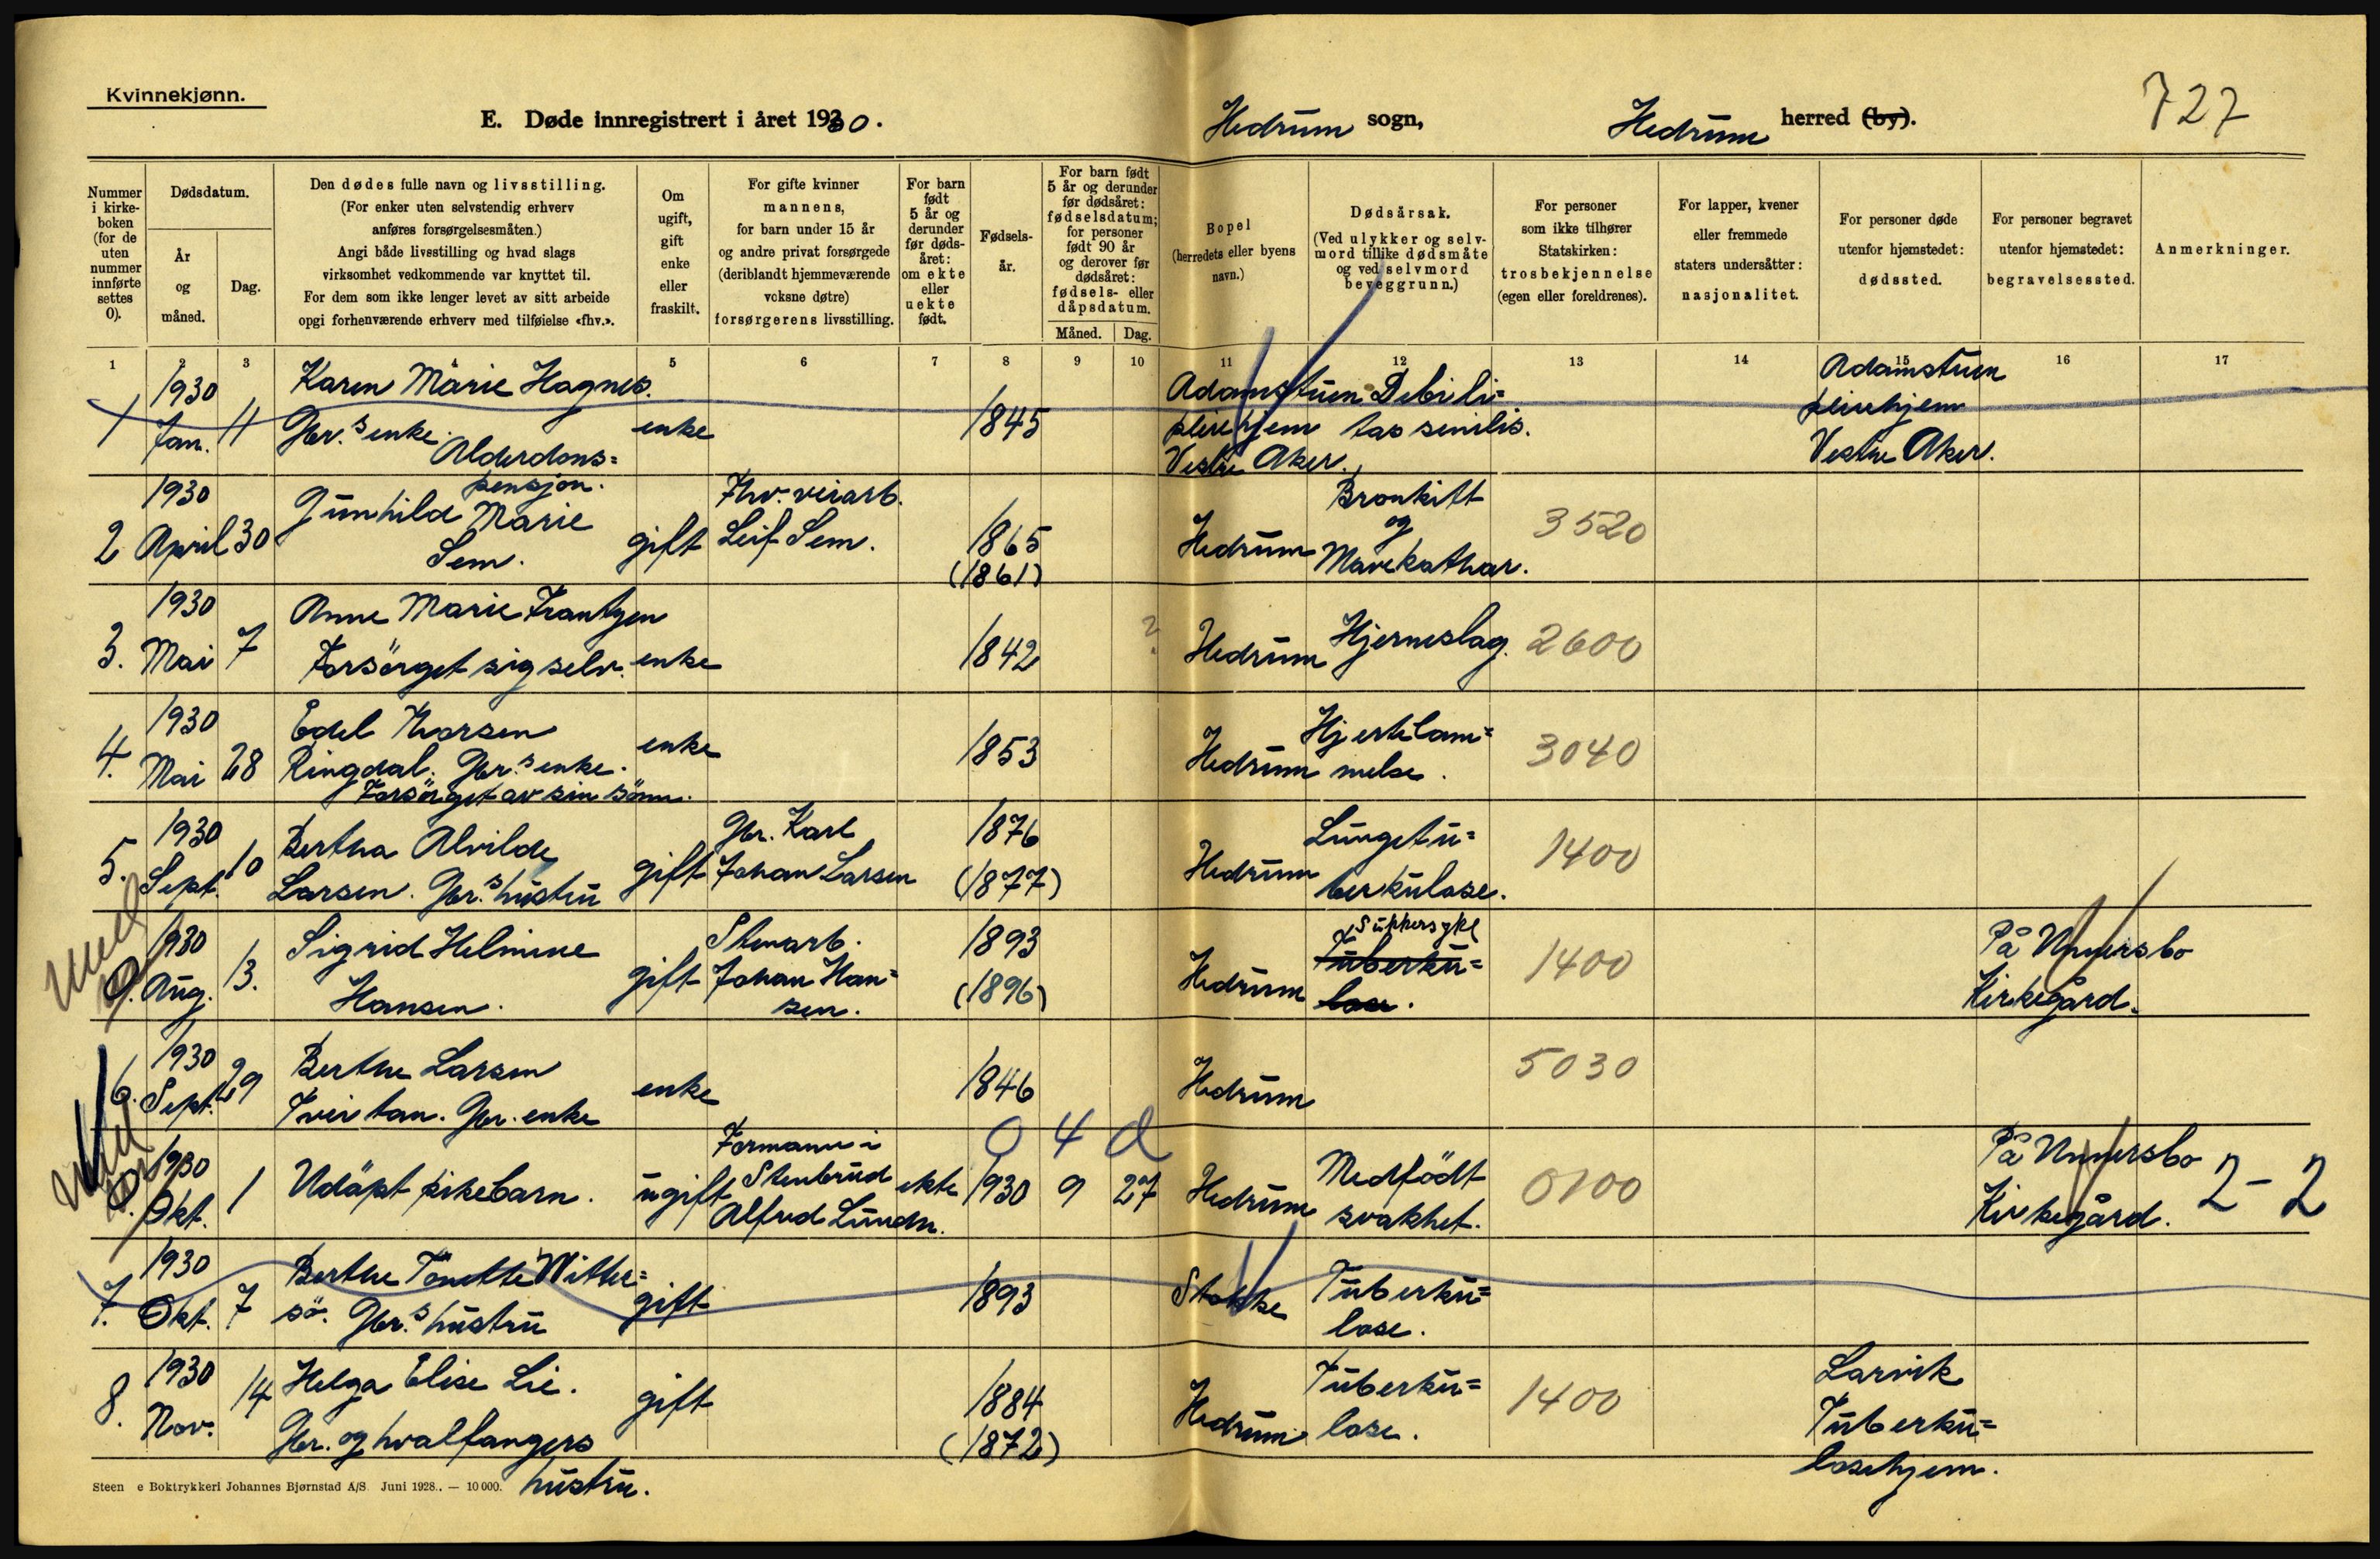 Kvinnekjønn.
E. Døde innregistrert i året 1930.
Hedrum sogn, Hedrum herred (by).
727
Nummer i kirke-boken (for de uten nummer innførte settes 0).
Dødsdatum.
År og måned.
Dag.
Den dødes fulle navn og livsstilling.
(For enker uten selvstendig erhverv
anføres forsørgelsesmåten.)
Angi både livsstilling og hvad slags
virksomhet vedkommende var knyttet til.
For dem som ikke lenger levet av sitt arbeide
opgi forhenværende erhverv med tilføielse «fhv.».
Om ugift, gift enke eller fraskilt.
For gifte kvinner
mannens,
for barn under 15 år
og andre privat forsørgede
(deriblandt hjemmeværende
voksne døtre)
forsørgerens livsstilling.
For barn født 5 år og derunder før døds-året: om ekte eller uekte født.
Fødsels-år.
For barn født
5 år og derunder
før dødsåret:
fødselsdatum;
for personer
født 90 år
og derover før
dødsåret:
fødsels- eller
dåpsdatum.
Måned. Dag.
Bopel
(herredets eller byens
navn.)
Dødsårsak.
(Ved ulykker og selv-
mord tillike dødsmåte
og ved selvmord
beveggrunn.)
For personer
som ikke tilhører
Statskirken:
trosbekjennelse
(egen eller foreldrenes).
For lapper, kvener
eller fremmede
staters undersåtter:
nasjonalitet.
For personer døde
utenfor hjemstedet:
dødssted.
For personer begravet
utenfor hjemstedet:
begravelsessted.
Anmerkninger.
1 2 3 4 5 6 7 8 9 10 11 12 13 14 15 16 17
1 1930 Jan. 11 Karen Marie Hagnes. Gbr.s enke. Alderdoms= pensjon. enke 1845 Adamstuen pleiehjem Vestre Aker. Debili= tas senilis. Adamstuen pleiehjem Vestre Aker.
2 1930 April 30 Gunhild Marie Sem. gift Fhv. veiarb. Leif Sem. 1865 (1861) Hedrum Bronkitt og Mavekathar. 3520
3. 1930 Mai 7 Anne Marie Frantzen Forsörget sig selv. enke 1842 ? Hedrum Hjerneslag. 2600
4. 1930 Mai 28 Edel Thorsen Ringdal. Gbr.s enke. Forsörget av sin sönn. enke 1853 Hedrum Hjertelam= melse. 3040
5. 1930 Sept. 10 Bertha Alvilde Larsen. Gbr.s hustru gift Gbr. Karl Johan Larsen 1876 (1877) Hedrum Lungetu= berkulose. 1400
0. 1930 Aug. 13. Sigrid Helmine Hansen. gift Stenarb. Johan Han= sen. 1893 (1896) Hedrum Sukkersyke Tuberku= lose. 1400 På Undersbo Kirkegård.
6. 1930 Sept. 29 Berthe Larsen Tveitan. Gbr. enke enke 1846 Hedrum 5030
0 4 d
0. 1930 Okt. 1 Udöpt pikebarn. ugift Formann i Stenbrud Alfred Lunde. ekte 1930 9 27 Hedrum Medfödt svakhet. 0100 På Undersbo Kirkegård. 2-2
7. 1930 Okt. 7 Berthe Tonette Witter= sö. Gbr.s hustru gift 1893 Stokke Tuberku= lose.
8. 1930 Nov. 14 Helga Elise Lie. Gbr. og hvalfangers hustru. gift 1884 (1872) Hedrum Tuberku= lose. 1400 Larvik Tuberku= losehjem.
Steen e Boktrykkeri Johannes Bjørnstad A/S Juni 1928.. — 10 000.